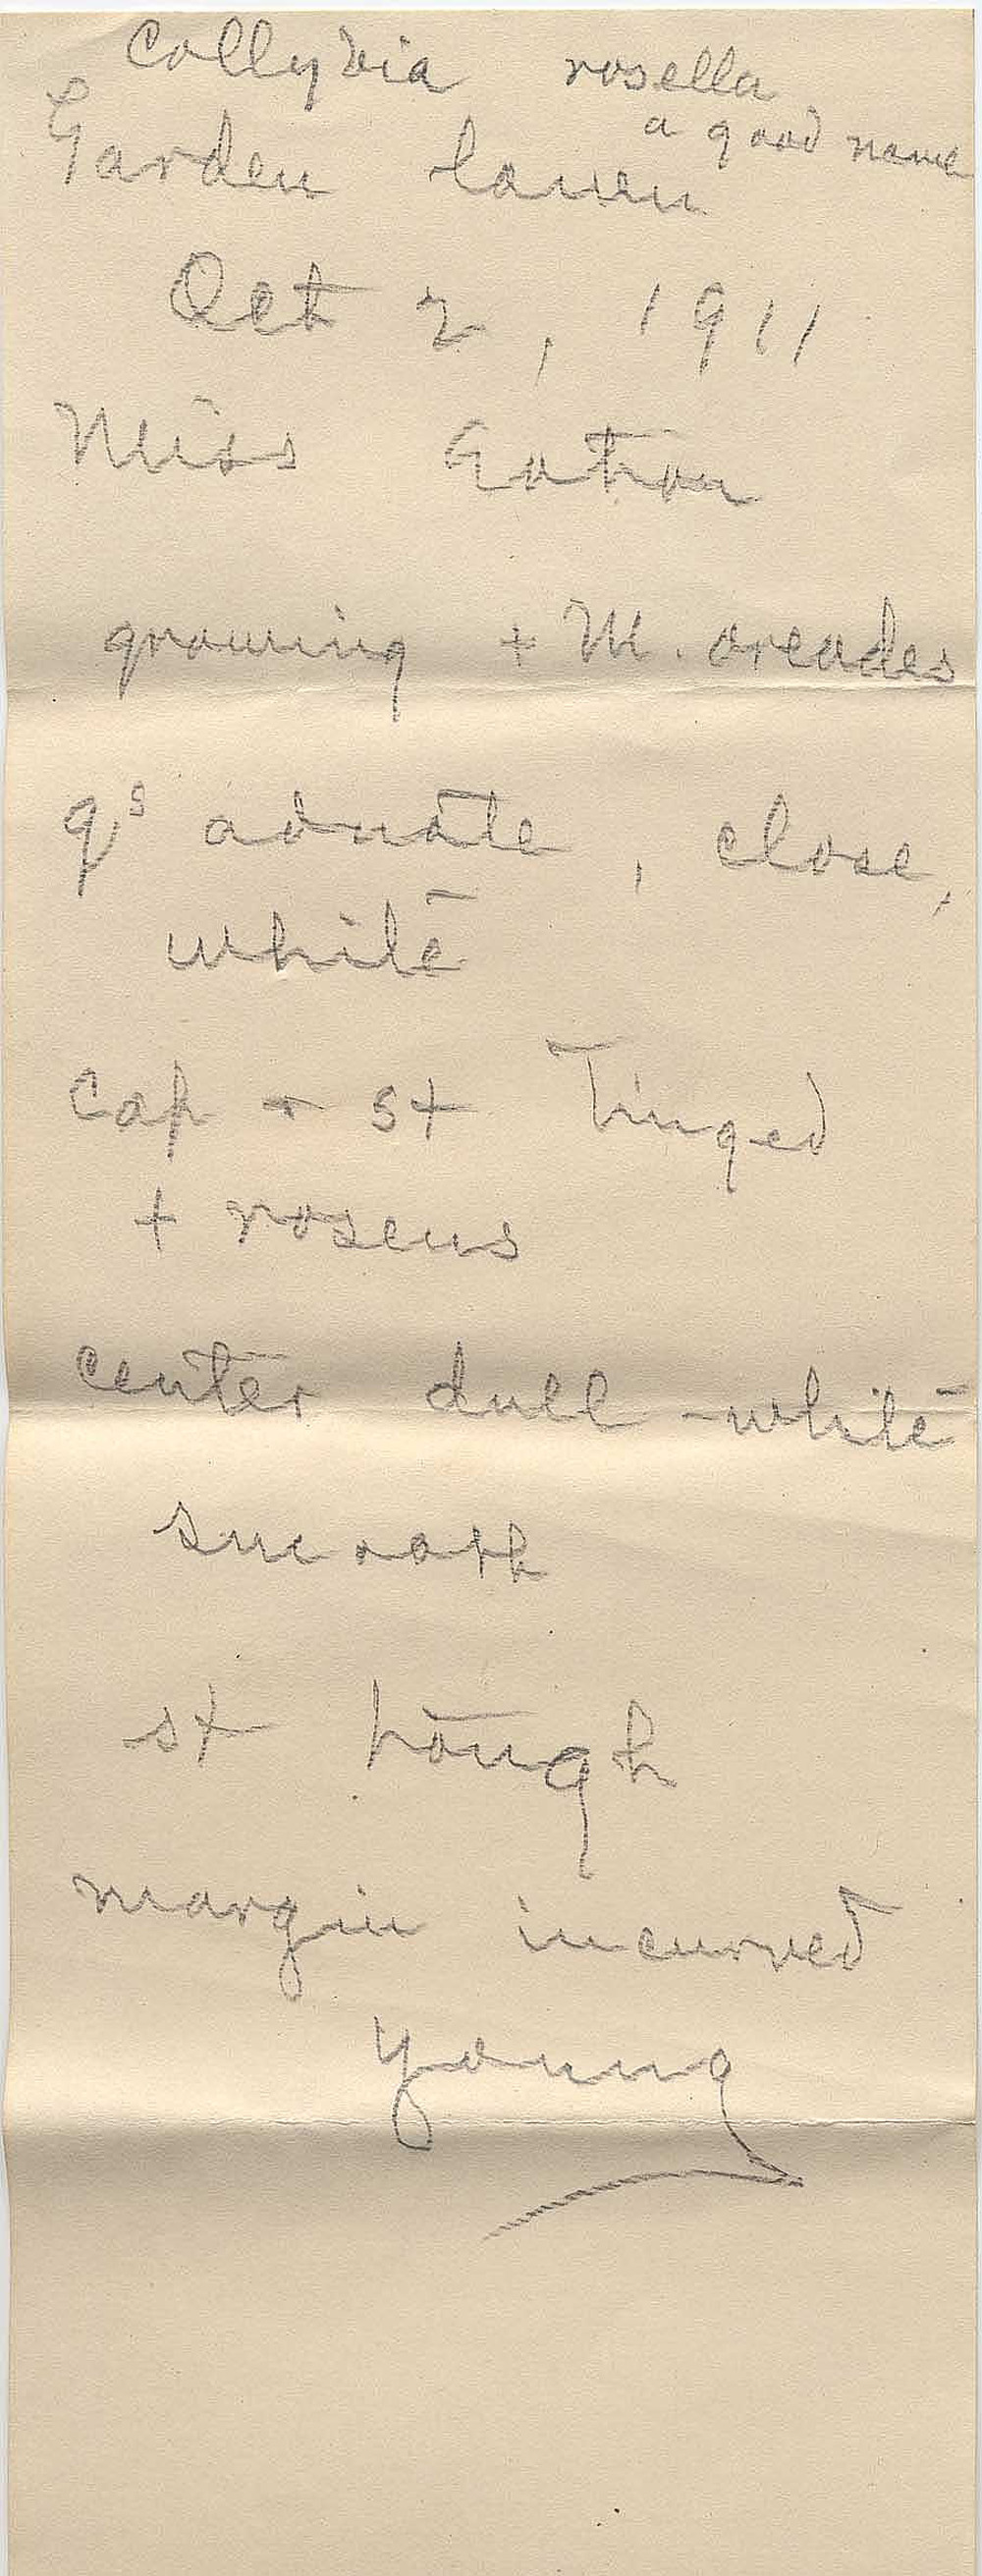 Collybia rosella
a good name
Garden lawn
Oct 2, 1911
Miss Eaton
growing + M. oreades
gs adnate, close,
white
Cap + st Tinged
+ roseus
center dull-white
smooth
st tough
margin incurved
young